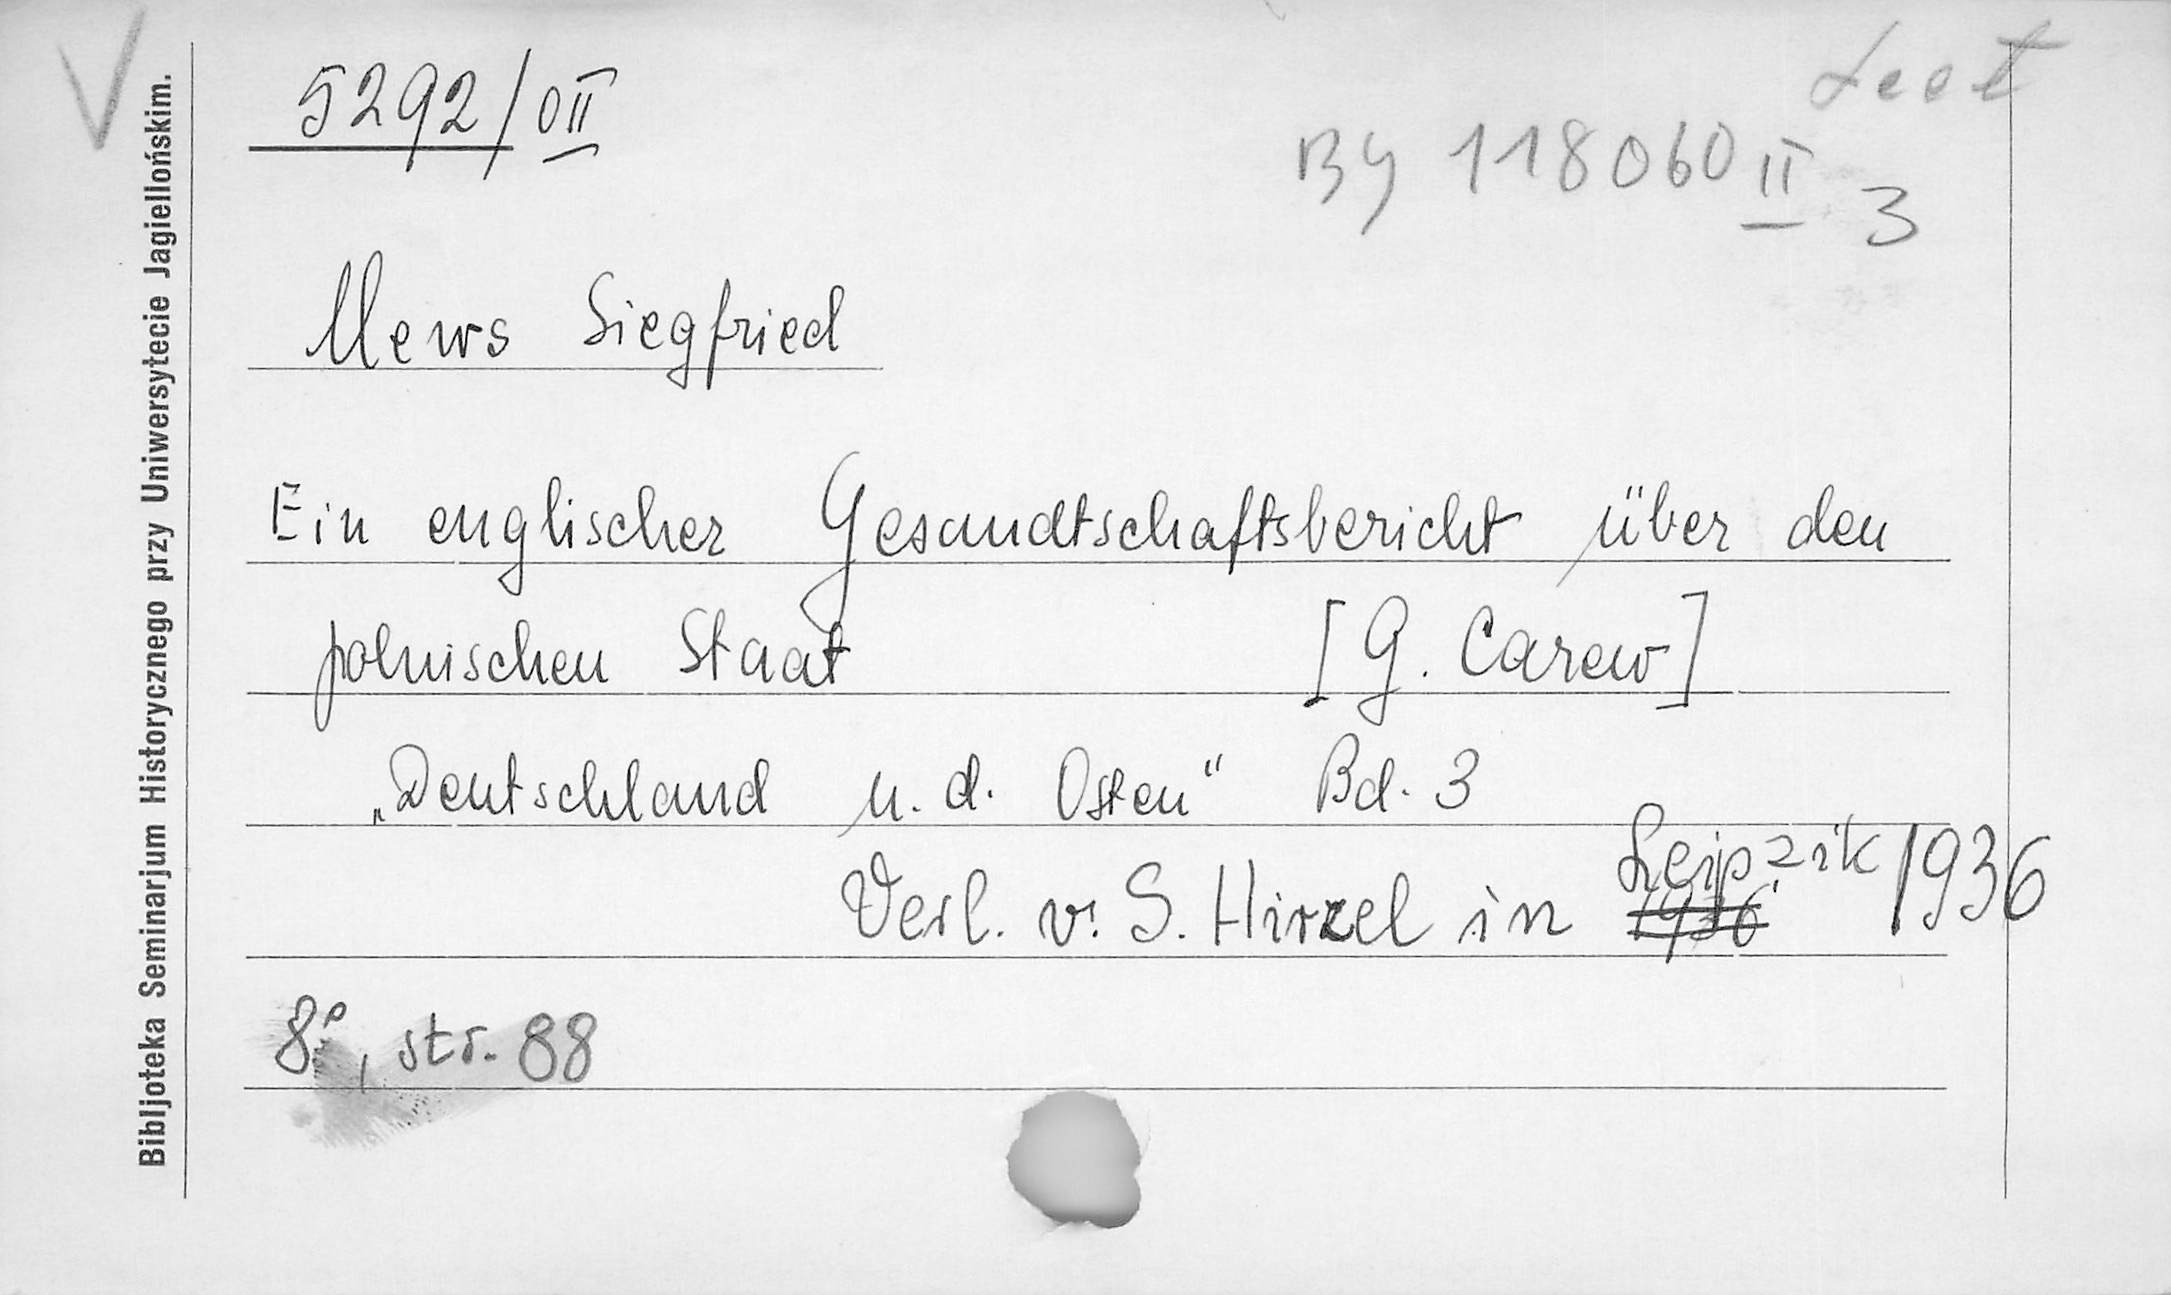 V
5292/0II
Leet
By 118060 II 3
Mews Siegfried
Ein englischer Gesandtschaftsbericht über den
polnischen Staat [G. Carew]
„Deutschland u. d. Osten“ Bd. 3
Verl. v. S. Hirzel in 1936 Leipzik 1936
8°, str. 88
Bibljoteka Seminarjum Historycznego przy Uniwersytecie Jagiellońskim.